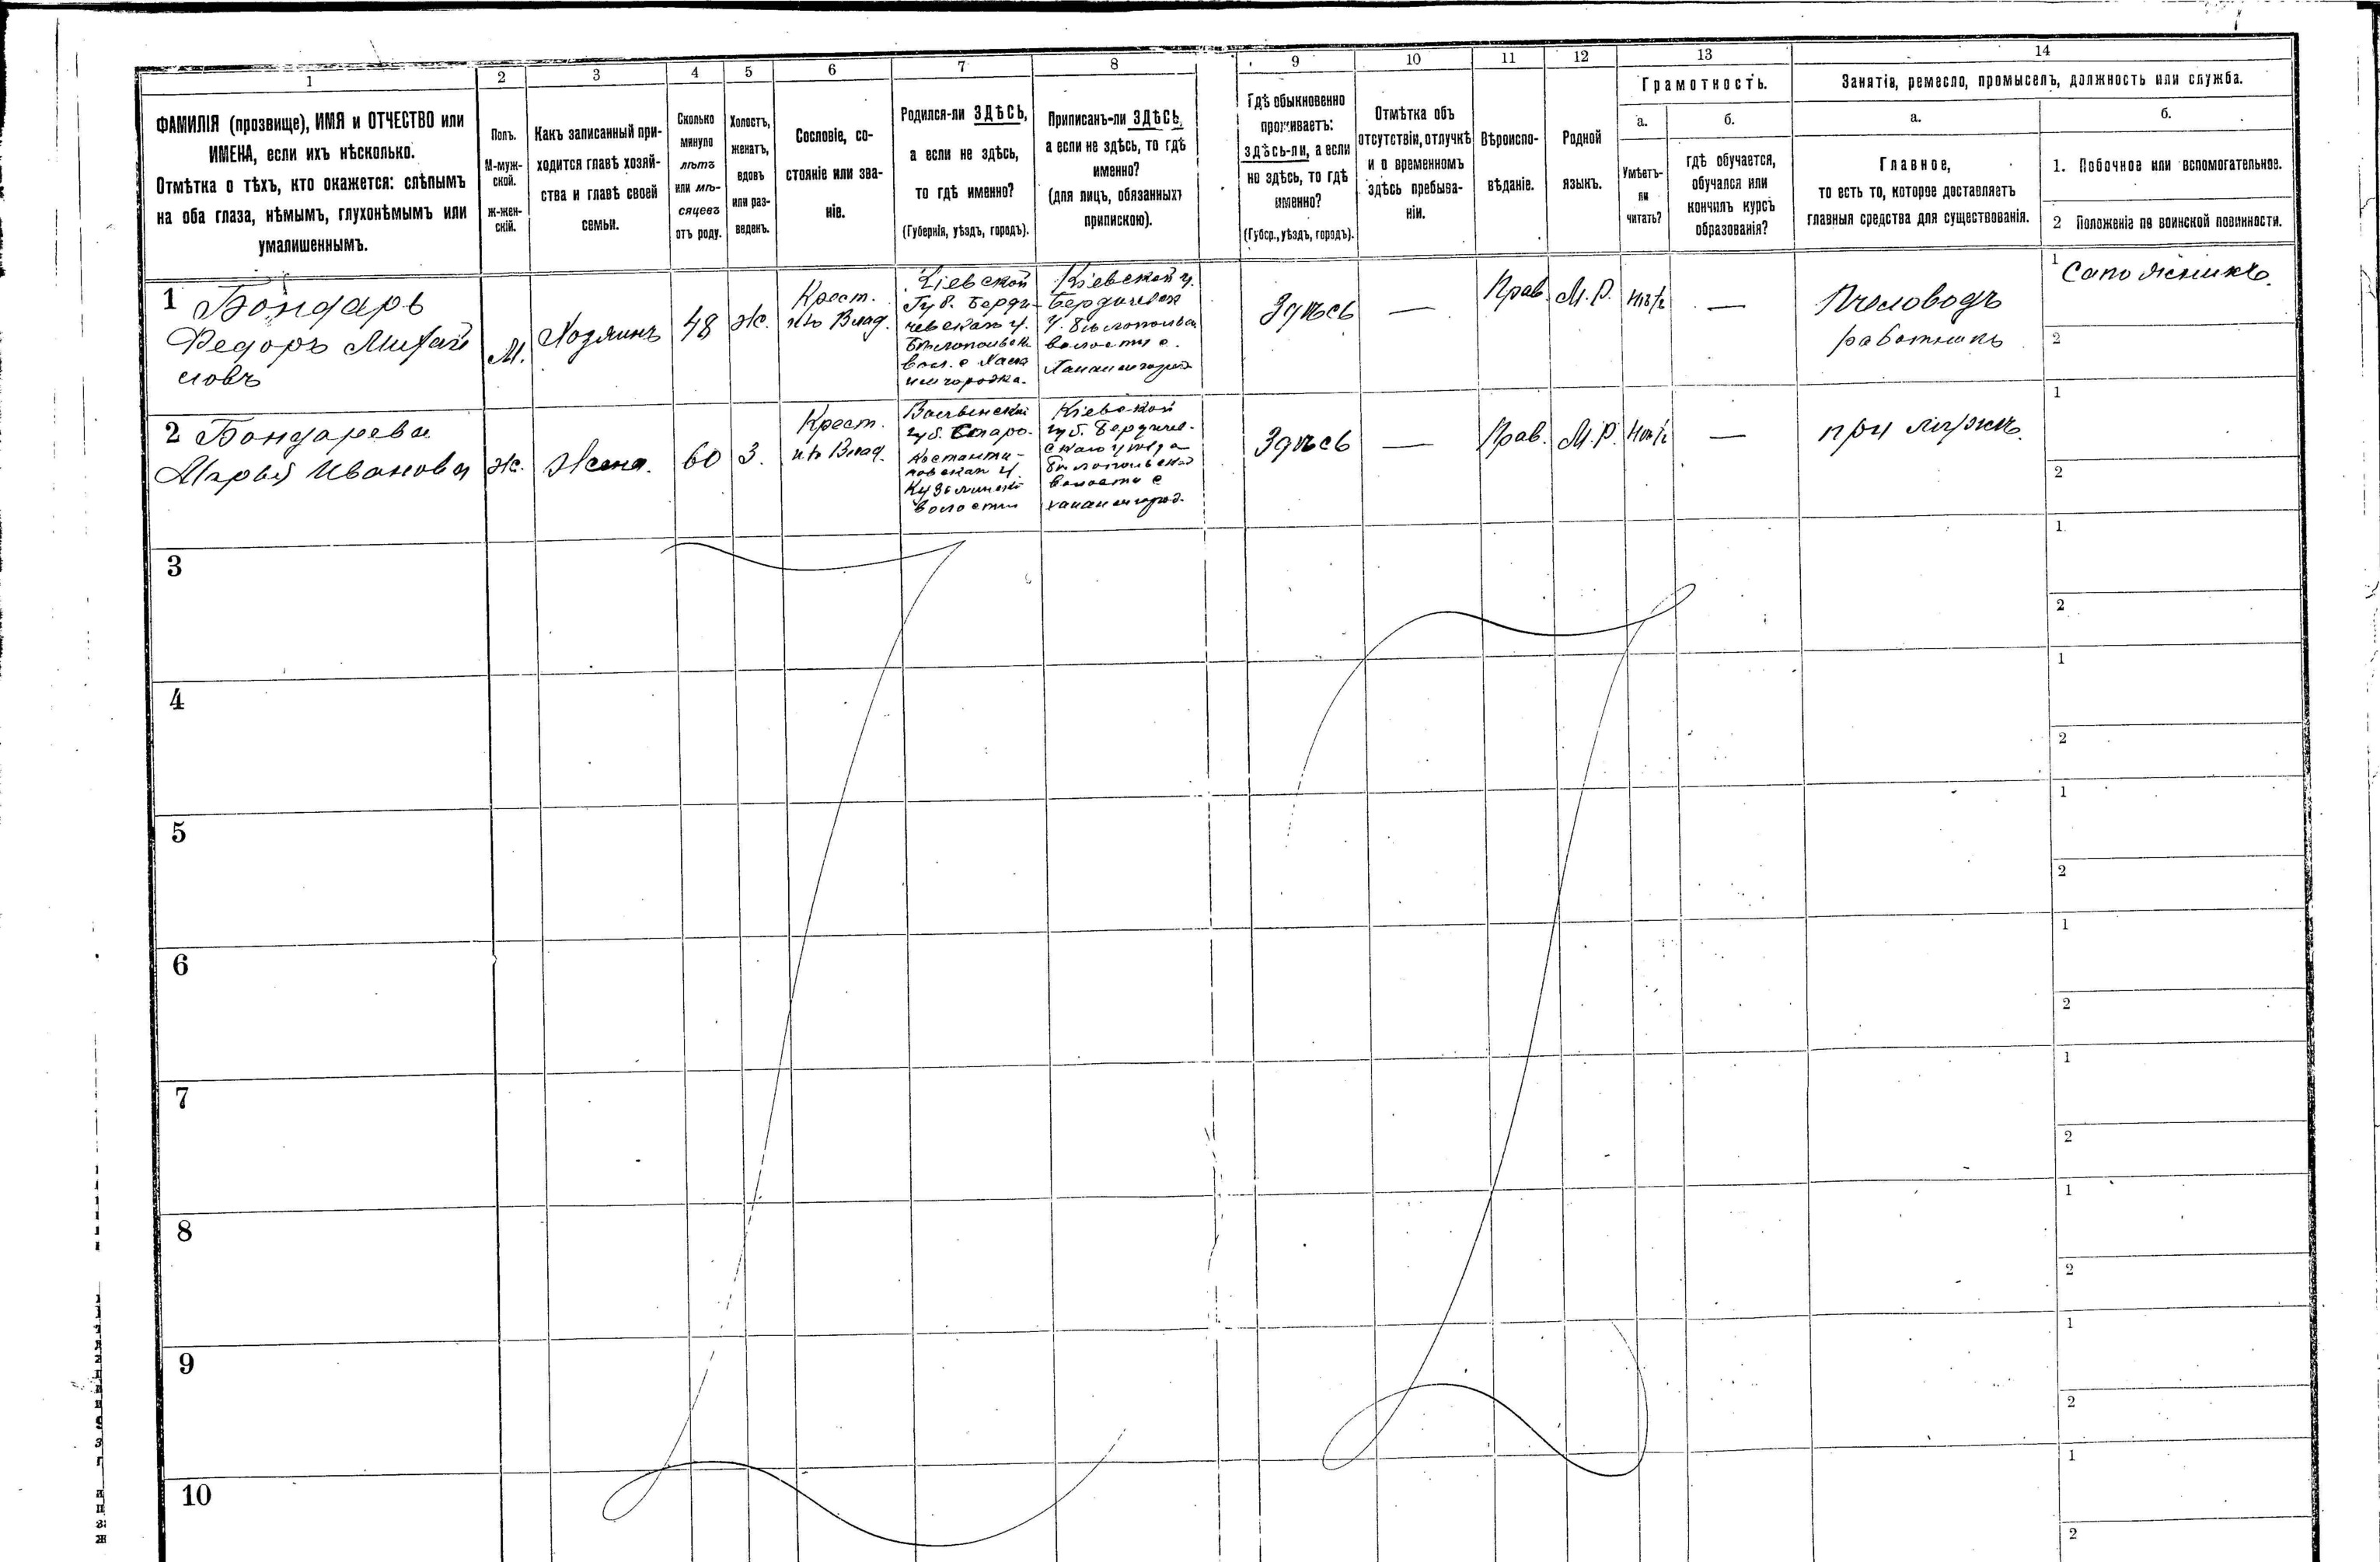 1 2 3 4 5 6 7 8 9 10 11 12 13 14
ФАМИЛІЯ (прозвище), ИМЯ и ОТЧЕСТВО или
ИМЕНА, если ихъ нѣсколько.
Отмѣтка о тѣхъ, кто окажется: слѣпымъ
на оба глаза, нѣмымъ, глухонѣмымъ или
умалишеннымъ.
Полъ.
М-муж-
ской.
ж-жен-
скій.
Какъ записанный при-
ходится главѣ хозяй-
ства и главѣ своей
семьи.
Сколько
минуло
лѣтъ
или мѣ-
сяцевъ
отъ роду.
Холостъ,
женатъ,
вдовъ
или раз-
веденъ.
Сословіе, со-
стояніе или зва-
ніе.
Родился-ли ЗДѢСЬ,
а если не здѣсь,
то гдѣ именно?
(Губернія, уѣздъ, городъ).
Приписанъ-ли ЗДѢСЬ,
а если не здѣсь, то гдѣ
именно?
(для лицъ, обязанныхъ
припискою).
Гдѣ обыкновенно
проживаетъ:
здѣсь-ли, а если
не здѣсь, то гдѣ
именно?
(Губер., уѣздъ, городъ).
Отмѣтка объ
отсутствіи, отлучкѣ
и о временномъ
здѣсь пребыва-
ніи.
Вѣроиспо-
вѣданіе.
Родной
языкъ.
Грамотность.
а.
Умѣетъ-
ли
читать?
б.
гдѣ обучается,
обучался или
кончилъ курсъ
образованія?
Занятія, ремесло, промыселъ, должность или служба.
а.
Главное,
то есть то, которое доставляетъ
главныя средства для существованія.
б.
1. Побочное или вспомогательное.
2 Положеніе по воинской повинности.
1 Бондарь
Федоръ Михай
ловъ
М.
Хозяинъ
48
Ж.
Крест.
изъ Влад.
Кіевской
Губ. Берди-
чевскаго у.
Бѣлопольск.
вол. с
городка.
Кіевской г.
Бердичевск
у. Бѣлопольск
волости с.
Здѣсь
—
Прав.
М.Р.
Нѣтъ
—
Пчеловодъ
работникъ
1 Сапожникъ
2
2 Бондарева
Марья Иванова
Ж.
Жена.
60
З.
Крест.
изъ Влад.
Волынской
губ. Старо-
Костанти-
новскаго у.
Кузьминской
волости
Кіевской
губ. Бердичев-
скаго уѣзда
Бѣлопольской
волости с
Здѣсь
—
Прав.
М.Р.
Нѣтъ
—
при мужѣ
1
2
3
1
2
4
1
2
5
1
2
6
1
2
7
1
2
8
1
2
9
1
2
10
1
2